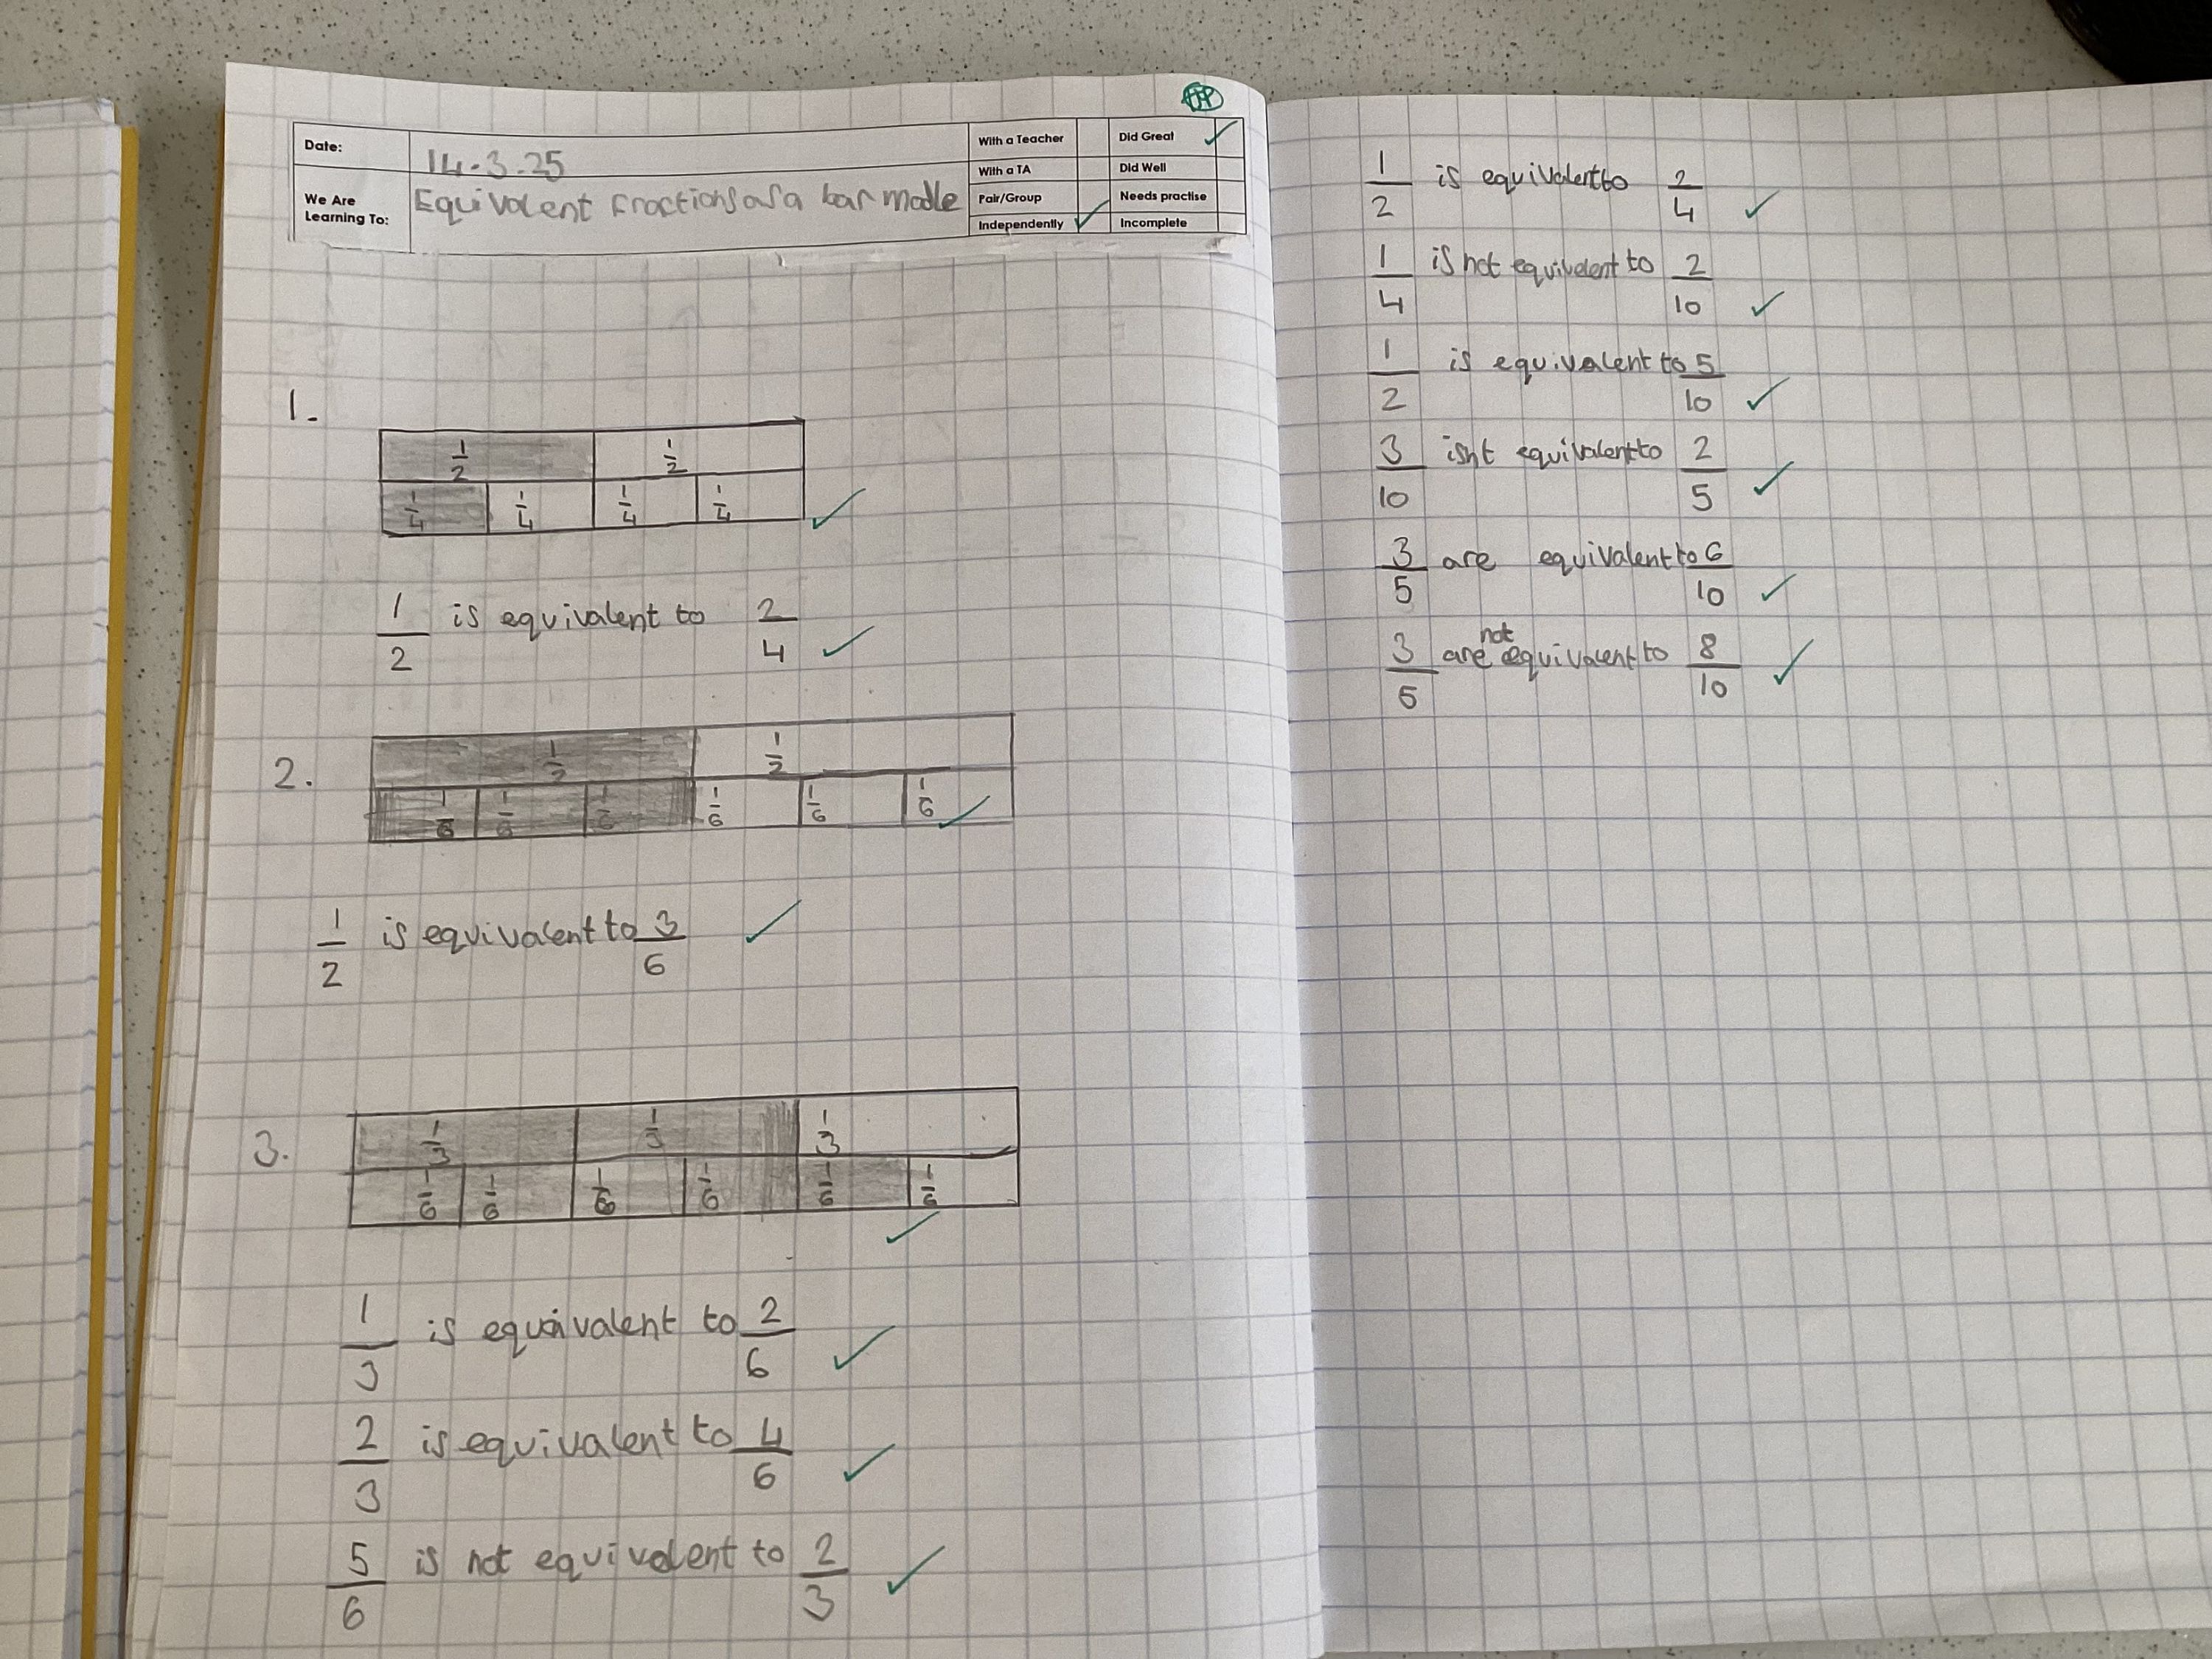 Date: 14.3.25
We Are Learning To: Equivalent fractions as a bar modle
With a Teacher
With a TA
Pair/Group
Independently ✓
Did Great ✓
Did Well
Needs practise
Incomplete
1.
1/2 1/2
1/4 1/4 1/4 1/4 ✓
1/2 is equivalent to 2/4 ✓
2.
1/2 1/2
1/6 1/6 1/6 1/6 1/6 1/6 ✓
1/2 is equivalent to 3/6 ✓
3.
1/3 1/3 1/3
1/6 1/6 1/6 1/6 1/6 1/6 ✓
1/3 is equivalent to 2/6 ✓
2/3 is equivalent to 4/6 ✓
5/6 is not equivalent to 2/3 ✓
1/2 is equivalent to 2/4 ✓
1/4 is not equivalent to 2/10 ✓
1/2 is equivalent to 5/10 ✓
3/10 isnt equivalent to 2/5 ✓
3/5 are equivalent to 6/10 ✓
3/5 are not equivalent to 8/10 ✓